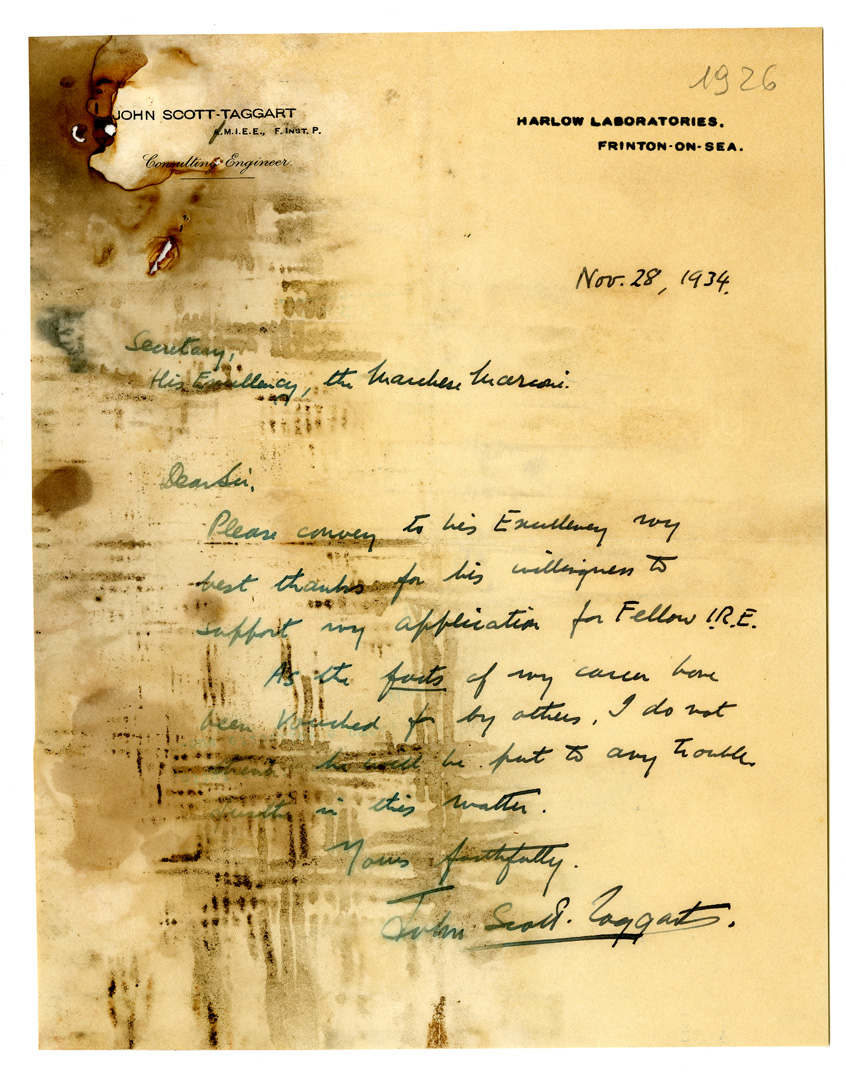 1926
JOHN SCOTT-TAGGART
A.M.I.E.E., F. INST. P.
Consulting Engineer.
HARLOW LABORATORIES,
FRINTON-ON-SEA.
Nov. 28, 1934.
Secretary,
His Excellency, the Marchese Marconi.
Dear Sir,
Please convey to his Excellency my
best thanks for his willingness to
support my application for Fellow I.R.E.
As the facts of my career have
been vouched for by others, I do not
he will be put to any trouble
in this matter.
Yours faithfully.
John Scott-Taggart.